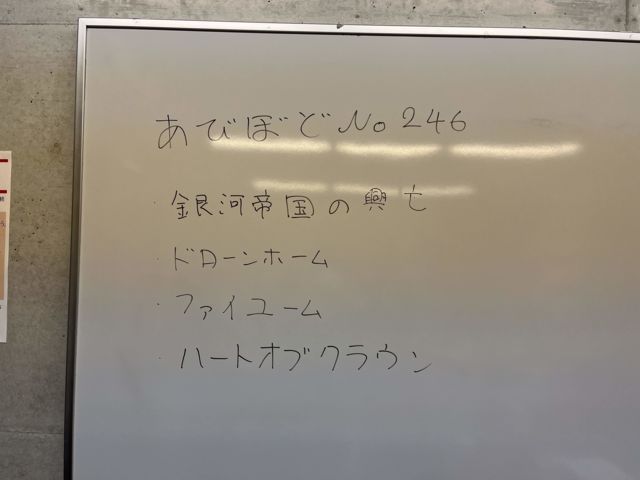 あびぼど No 246
・銀河帝国の興亡
・ドローンホーム
・ファイユーム
・ハートオブクラウン